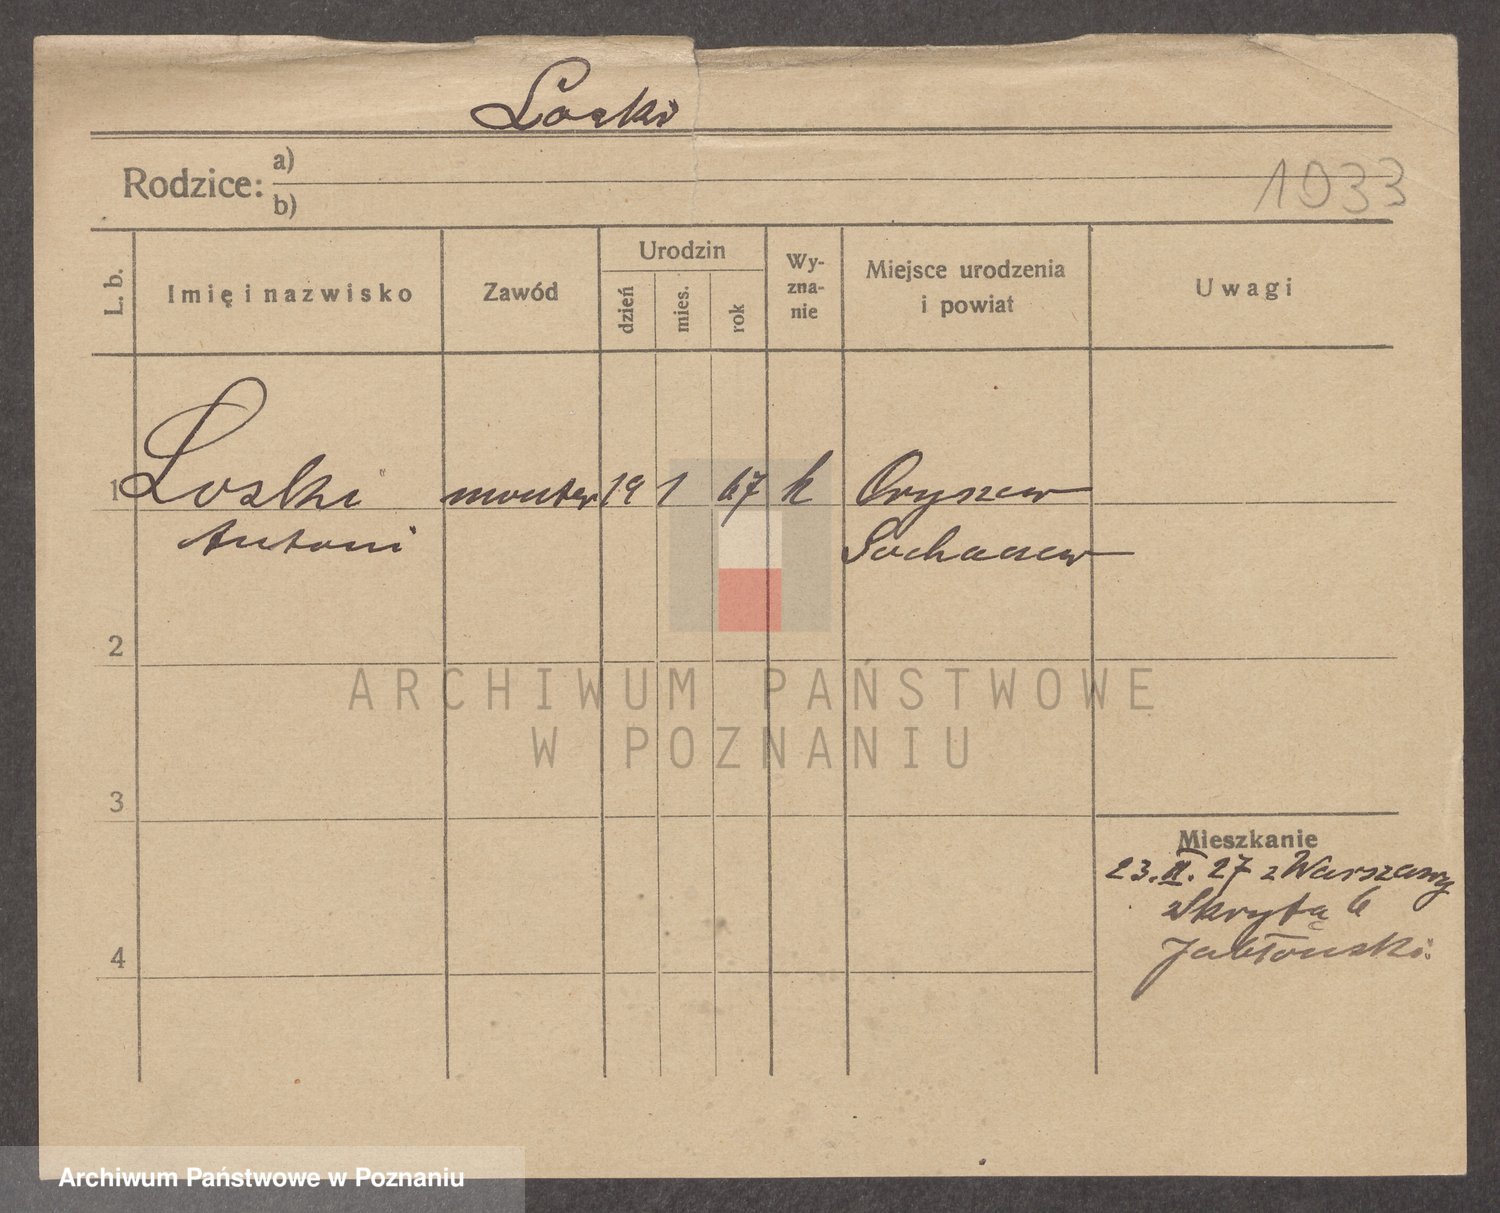 Loski
Rodzice: a)
b)
1933
L. b.
Imię i nazwisko
Zawód
Urodzin
dzień
mies.
rok
Wy-
zna-
nie
Miejsce urodzenia
i powiat
Uwagi
1 Loski monter 19 1 67 k Oryszew
Antoni Sochaczew
2
3
4
Mieszkanie
23.II.27 z Warszawy
Skryta 6
Jabłonski.
ARCHIWUM PAŃSTWOWE
W POZNANIU
Archiwum Państwowe w Poznaniu